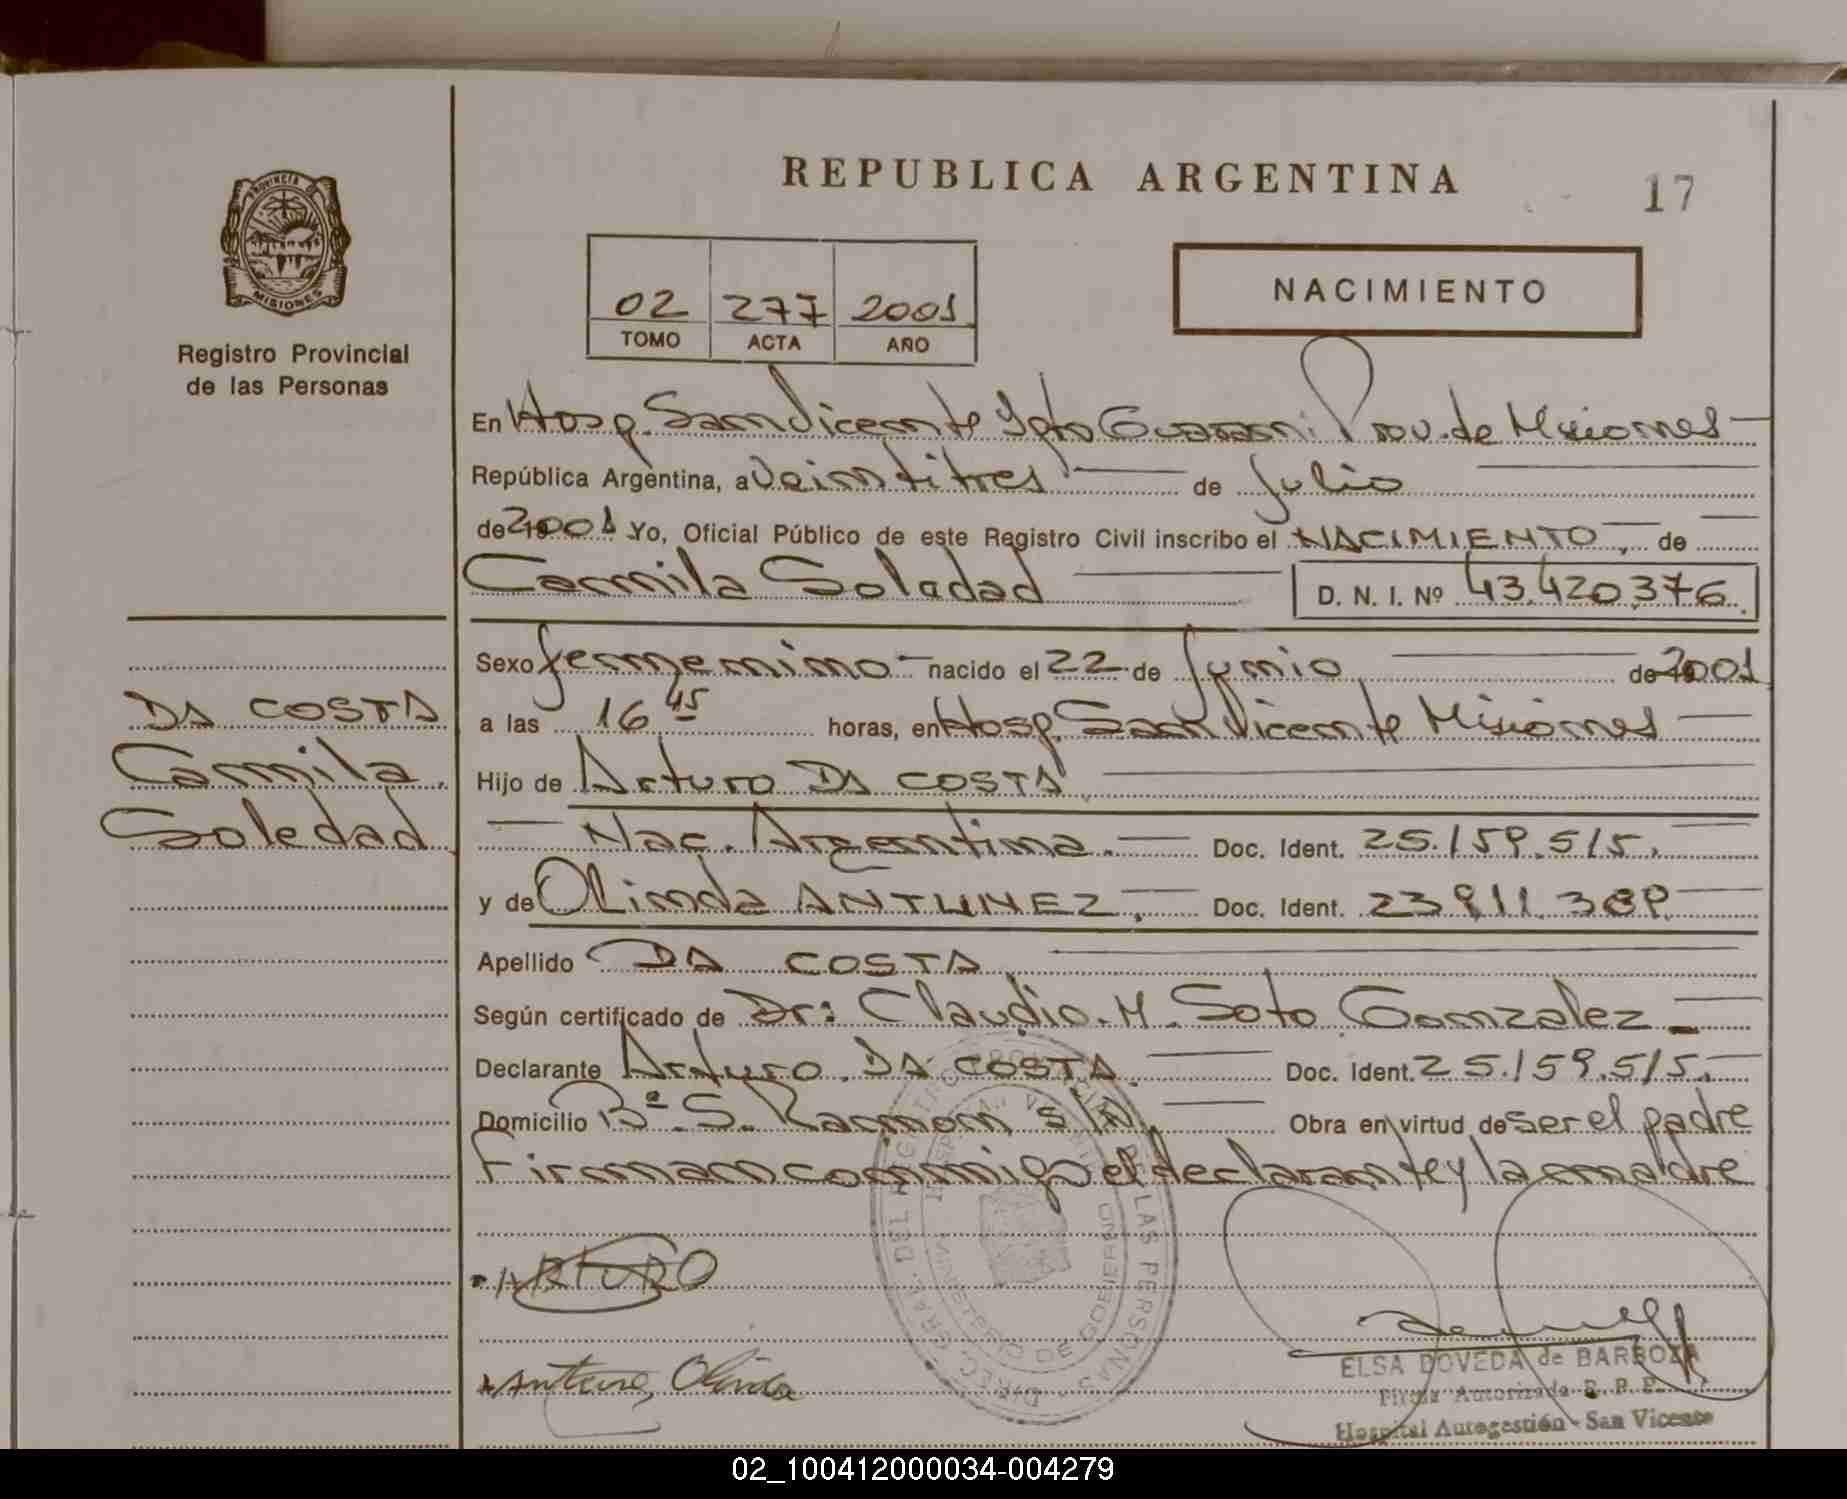 REPUBLICA ARGENTINA
17
PROVINCIA DE
MISIONES
Registro Provincial
de las Personas
02 277 2001
TOMO ACTA AÑO
NACIMIENTO
En Hosp. San Vicente Dpto Guarani Prov. de Misiones
República Argentina, a Veintitres de Julio
de 2001 Yo, Oficial Público de este Registro Civil inscribo el NACIMIENTO, de
Camila Soledad D. N. I. Nº 43.420.376
Sexo femenino nacido el 22 de Junio de 2001
a las 16 45 horas, en Hosp. San Vicente Misiones
Hijo de Arturo DA COSTA
Nac. Argentina. Doc. Ident. 25.159.515.
y de Olinda ANTUNEZ, Doc. Ident.
Apellido DA COSTA
Según certificado de Dr: Claudio. M. Soto Gonzalez
Declarante Arturo DA COSTA. Doc. Ident. 25.159.515.
Domicilio Bº. S. Ramon s/n, Obra en virtud de ser el padre
Firman conmigo el declarante y la madre
DA COSTA
Camila
Soledad
ARTURO
Olinda
DIREC. GRAL. DEL REGISTRO PROVINCIAL DE LAS PERSONAS
MINISTERIO DE GOBIERNO
ELSA DOVEDA de BARBOZA
Firma Autorizada R. P. P.
Hospital Autogestión - San Vicente
02_100412000034-004279